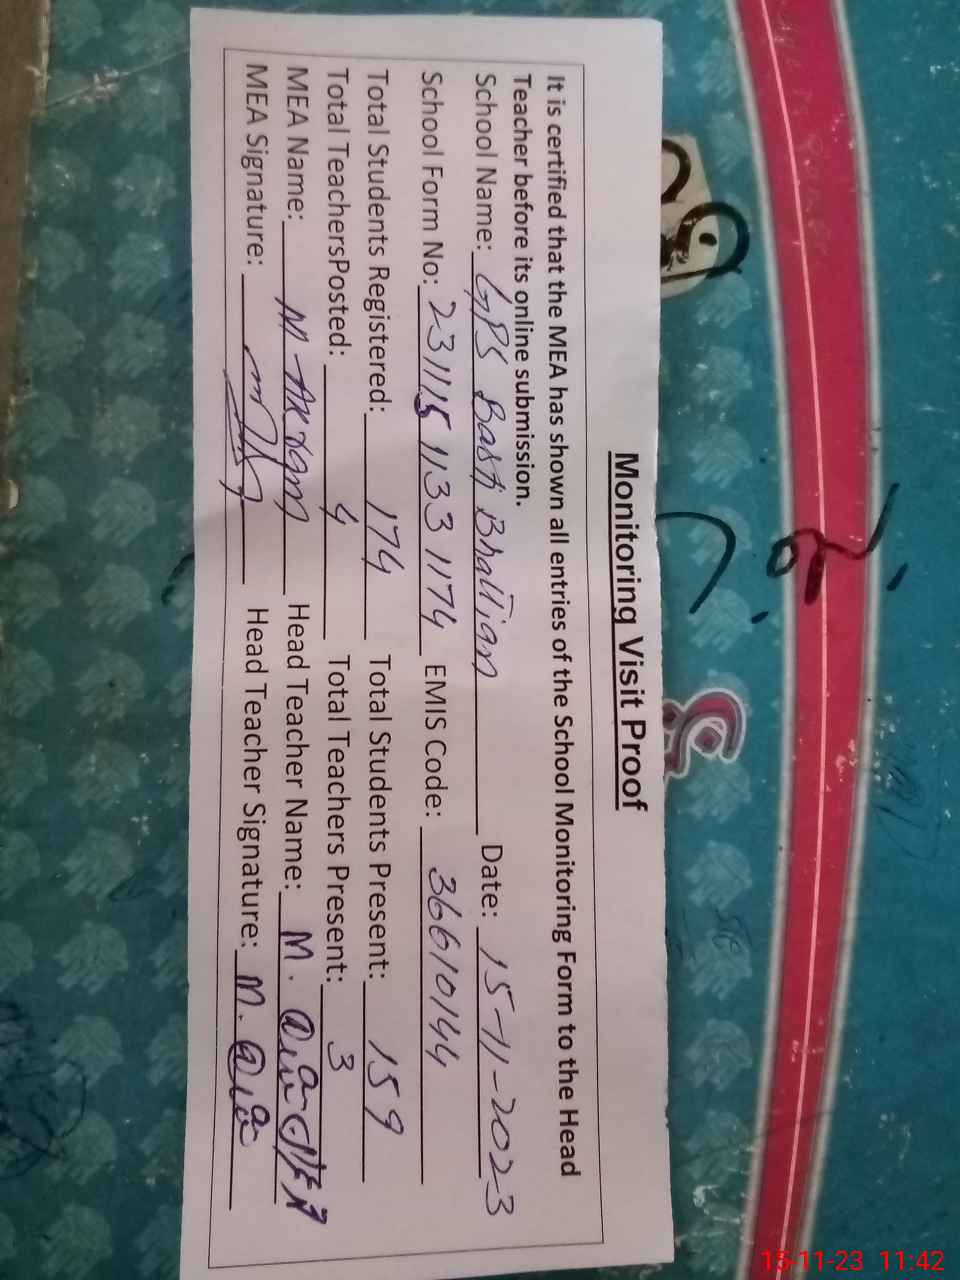 Monitoring Visit Proof
It is certified that the MEA has shown all entries of the School Monitoring Form to the Head
Teacher before its online submission.
School Name: GPS Basti Bhattian Date: 15-11-2023
School Form No: 231115 1133 1174 EMIS Code: 36610144
Total Students Registered: 174 Total Students Present: 159
Total TeachersPosted: 4 Total Teachers Present: 3
MEA Name: M Akram Head Teacher Name: M.
MEA Signature: Head Teacher Signature: M.
15-11-23 11:42